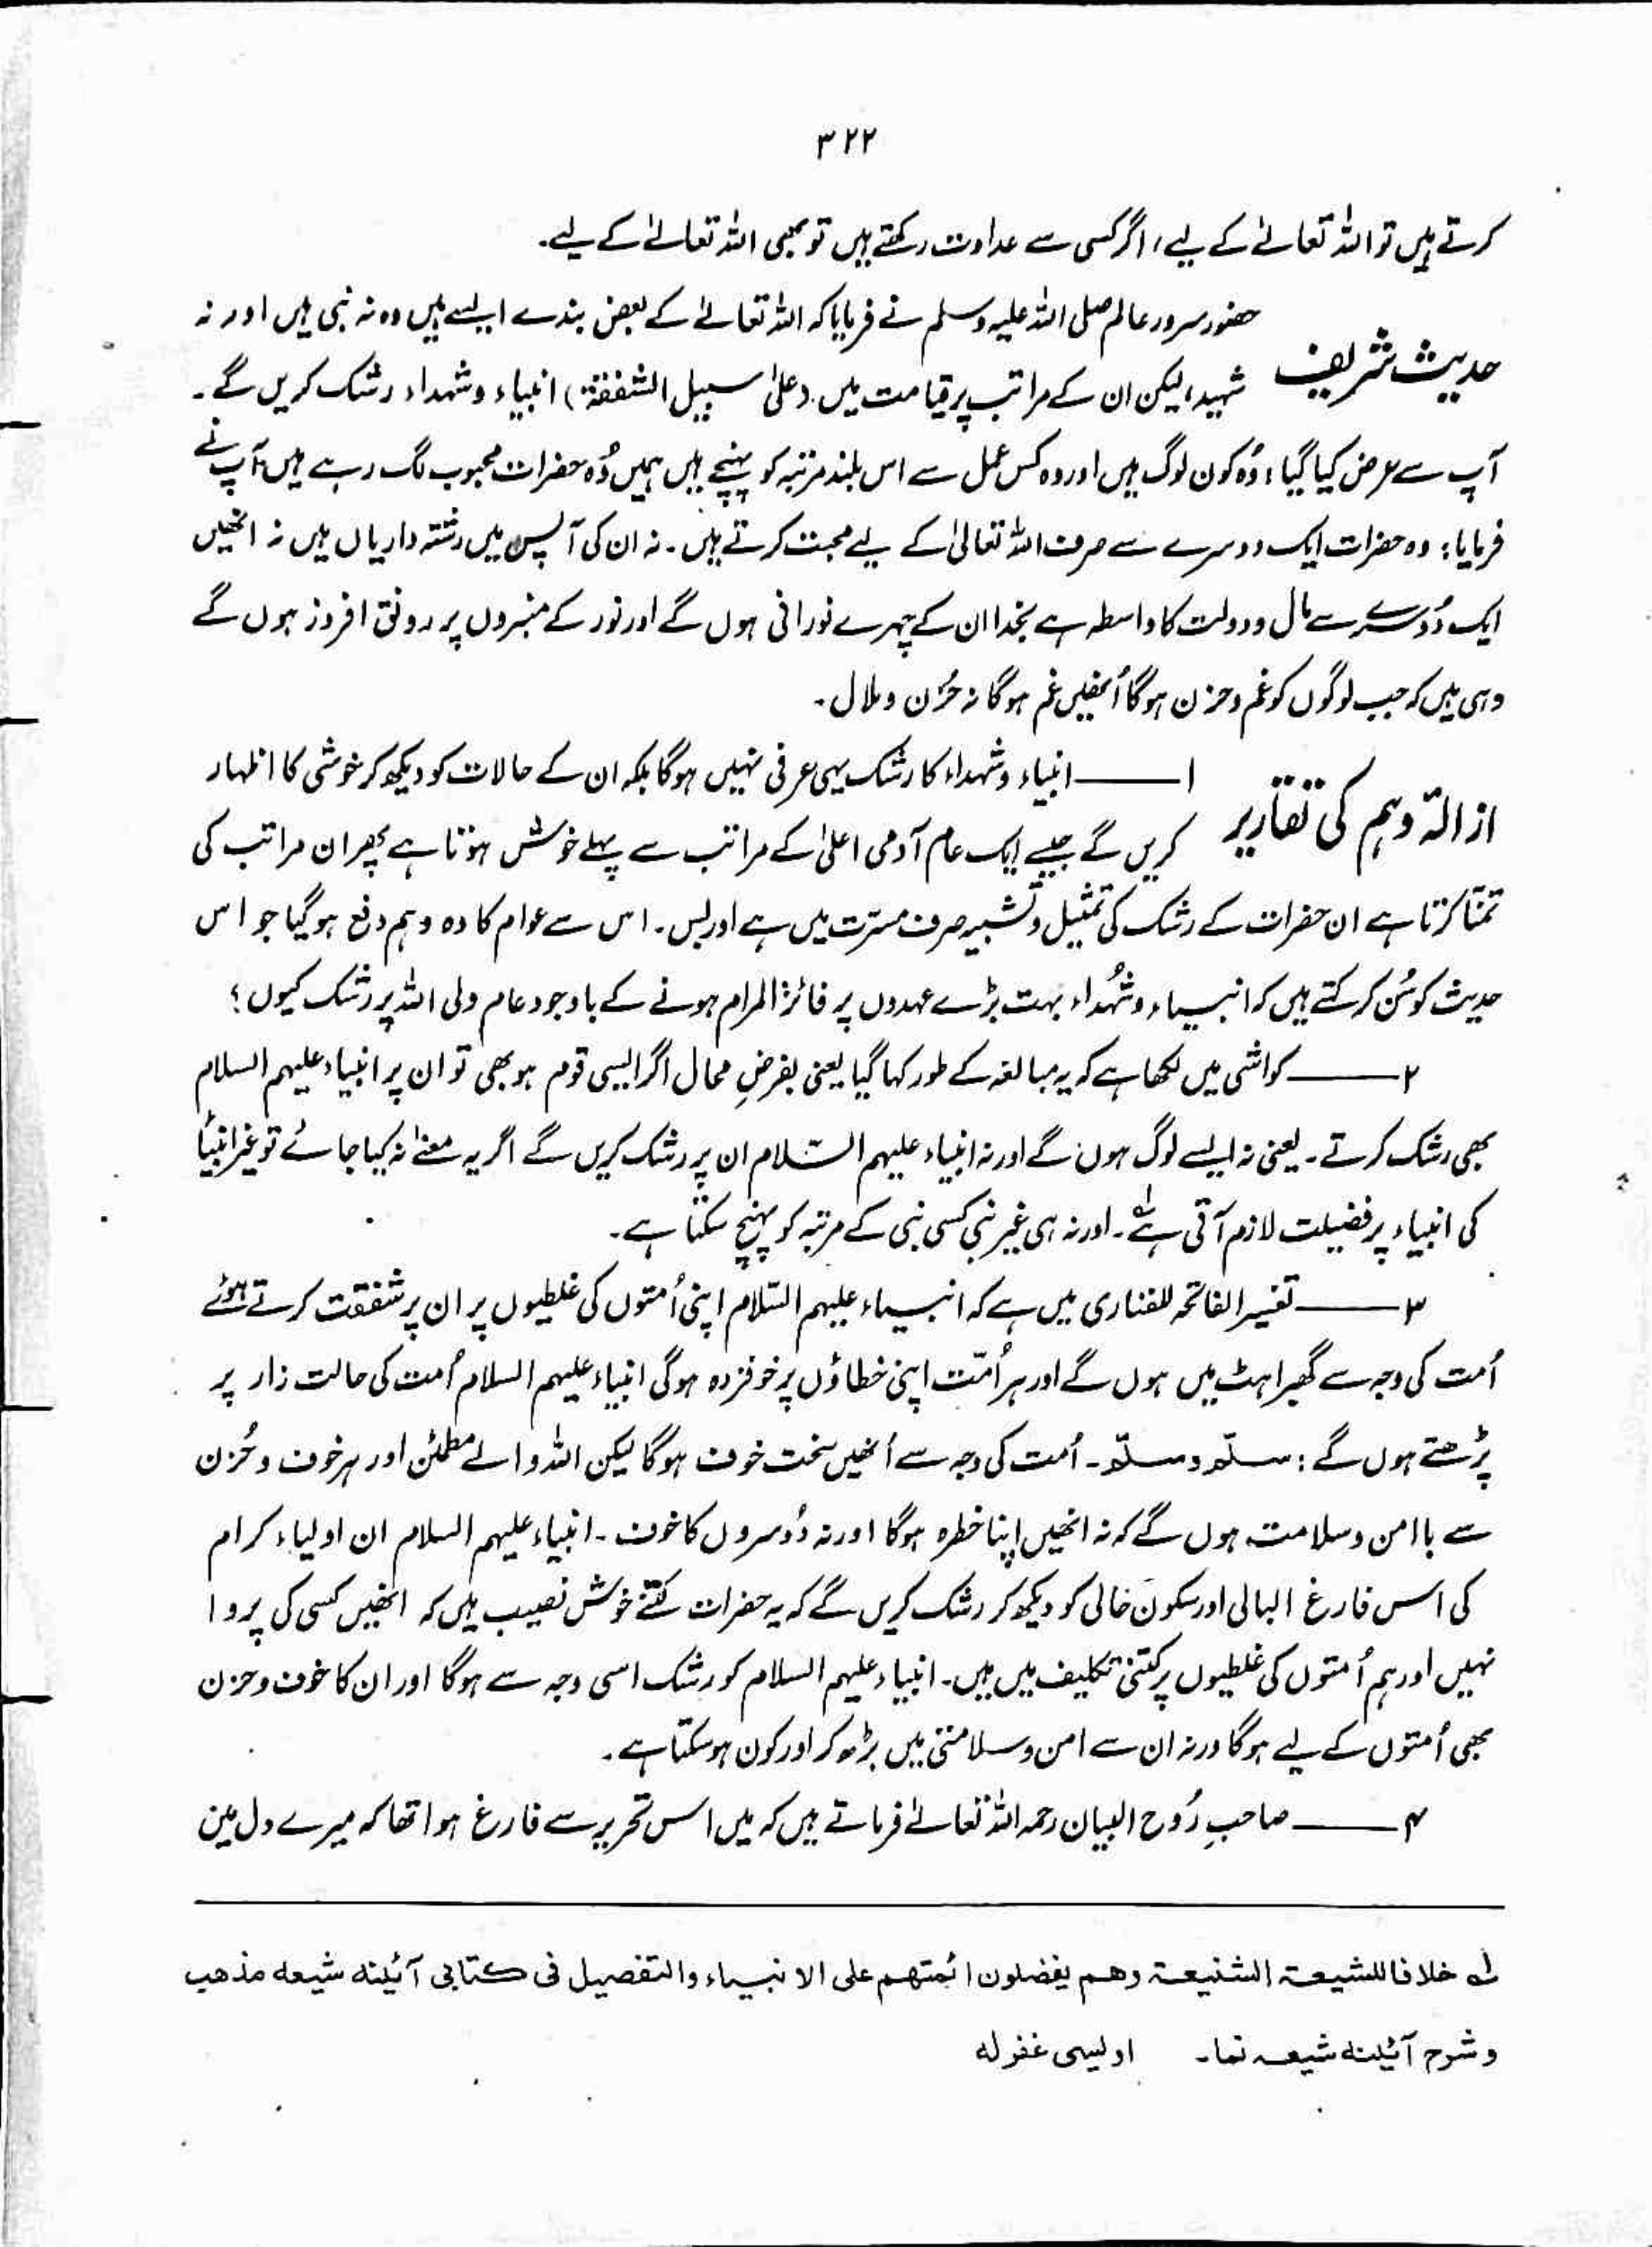 ۳۲۲
کرتے ہیں تو اللہ تعالےٰ کے لیے، اگر کسی سے عداوت رکھتے ہیں تو بھی اللہ تعالےٰ کے لیے۔
حدیث شریف حضور سرور عالم صلی اللہ علیہ وسلم نے فرمایا کہ اللہ تعالےٰ کے بعض بندے ایسے ہیں وہ نہ نبی ہیں اور نہ
شہید، لیکن ان کے مراتب پر قیامت میں (علیٰ سبیل الشفقۃ) انبیاء و شہداء رشک کریں گے۔
آپ سے عرض کیا گیا: وُہ کون لوگ ہیں اور وہ کس عمل سے اس بلند مرتبہ کو پہنچے ہیں ہمیں وُہ حضرات محبوب لگ رہے ہیں، آپ نے
فرمایا: وہ حضرات ایک دوسرے سے صرف اللہ تعالیٰ کے لیے محبت کرتے ہیں۔ نہ ان کی آپس میں رشتہ داریاں ہیں نہ انھیں
ایک دُوسرے سے مال و دولت کا واسطہ ہے بخدا ان کے چہرے نورانی ہوں گے اور نور کے منبروں پر رونق افروز ہوں گے
وہی ہیں کہ جب لوگوں کو غم و حزن ہوگا اُنھیں غم ہوگا نہ حُزن و ملال۔
ازالۂ وہم کی تقاریر ۱ــــــ انبیاء و شہداء کا رشک یہی عرفی نہیں ہوگا بلکہ ان کے حالات کو دیکھ کر خوشی کا اظہار
کریں گے جیسے ایک عام آدمی اعلیٰ کے مراتب سے پہلے خوش ہوتا ہے پھر ان مراتب کی
تمنّا کرتا ہے ان حضرات کے رشک کی تمثیل و تشبیہ صرف مسرّت میں ہے اور بس۔ اس سے عوام کا وہ وہم دفع ہوگیا جو اس
حدیث کو سُن کر کہتے ہیں کہ انبیاء و شُہداء بہت بڑے عہدوں پر فائز المرام ہونے کے باوجود عام ولی اللہ پر رشک کیوں؟
۲ــــــ کواشی میں لکھا ہے کہ یہ مبالغہ کے طور کہا گیا یعنی بفرضِ محال اگر ایسی قوم ہو بھی تو ان پر انبیاء علیہم السلام
بھی رشک کرتے۔ یعنی نہ ایسے لوگ ہوں گے اور نہ انبیاء علیہم السّلام ان پر رشک کریں گے اگر یہ معنےٰ نہ کیا جائے تو غیر انبیاء
کی انبیاء پر فضیلت لازم آتی ہے لہ۔ اور نہ ہی غیر نبی کسی نبی کے مرتبہ کو پہنچ سکتا ہے۔
۳ــــــ تفسیر الفاتحہ للفناری میں ہے کہ انبیاء علیہم السّلام اپنی اُمتوں کی غلطیوں پر ان پر شفقت کرتے ہوئے
اُمت کی وجہ سے گھبراہٹ میں ہوں گے اور ہر اُمّت اپنی خطاؤں پر خوفزدہ ہوگی انبیاء علیہم السلام اُمت کی حالت زار پر
پڑھتے ہوں گے: سلّم وسلّم۔ اُمت کی وجہ سے اُنھیں سخت خوف ہوگا لیکن اللہ والے مطمئن اور ہر خوف و حُزن
سے باامن و سلامت ہوں گے کہ نہ انھیں اپنا خطرہ ہوگا اور نہ دُوسروں کا خوف۔ انبیاء علیہم السلام ان اولیاء کرام
کی اس فارغ البالی اور سکون خالی کو دیکھ کر رشک کریں گے کہ یہ حضرات کتنے خوش نصیب ہیں کہ انھیں کسی کی پروا
نہیں اور ہم اُمتوں کی غلطیوں پر کتنی تکلیف میں ہیں۔ انبیاء علیہم السلام کو رشک اسی وجہ سے ہوگا اور ان کا خوف و حزن
بھی اُمتوں کے لیے ہوگا ورنہ ان سے امن و سلامتی میں بڑھ کر اور کون ہوسکتا ہے۔
۴ــــــ صاحبِ رُوح البیان رحمہ اللہ تعالےٰ فرماتے ہیں کہ میں اس تحریر سے فارغ ہوا تھا کہ میرے دل میں
لہ خلافا للشیعۃ الشنیعۃ وھم یفضلون ائمتھم علی الانبیاء والتفصیل فی کتابی آئینہ شیعہ مذھب
وشرح آئینہ شیعہ نما۔ اویسی غفرلہ